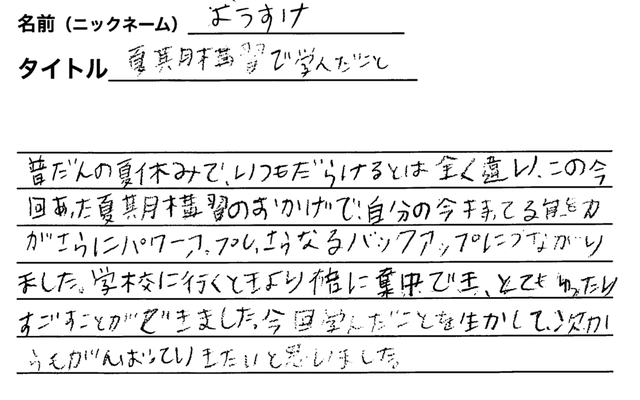 名前（ニックネーム） ようすけ
タイトル 夏期講習で学んだこと
普だんの夏休みで、いつもだらけるとは全く違い、この今
回あった夏期講習のおかげで、自分の今持てる能力
がさらにパワーアップし、さらなるバックアップにつながり
ました。学校に行くときより倍に集中でき、とてもゆったり
すごすことができました。今回学んだことを生かして、次か
らもがんばっていきたいと思いました。